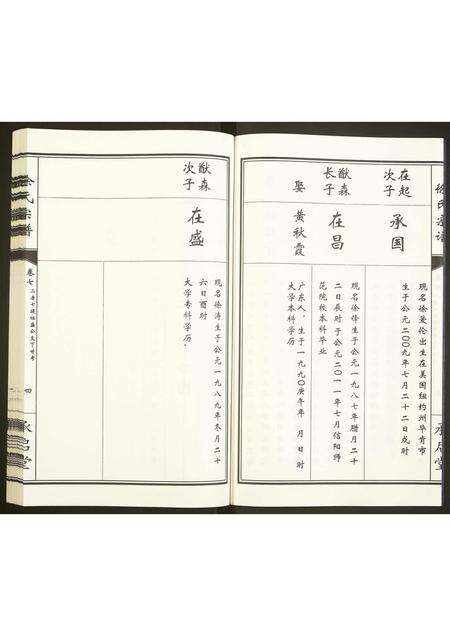 徐氏宗谱
在起
次子
承国
现名徐爱伦出生在美国纽约州毕肯市
生于公元二00九年七月二十二日戌时
猷森
长子
在昌
现名徐锋生于公元一九八七年腊月二十
二日辰时于公元二0一一年七月信阳师
范院校本科毕业
娶
黄秋霞
广东人，生于一九九0庚午年 月 日时
大学本科学历
猷森
次子
在盛
现名徐涛生于公元一九八九年冬月二十
六日酉时
大学专科学历，
徐氏宗谱
卷七
四